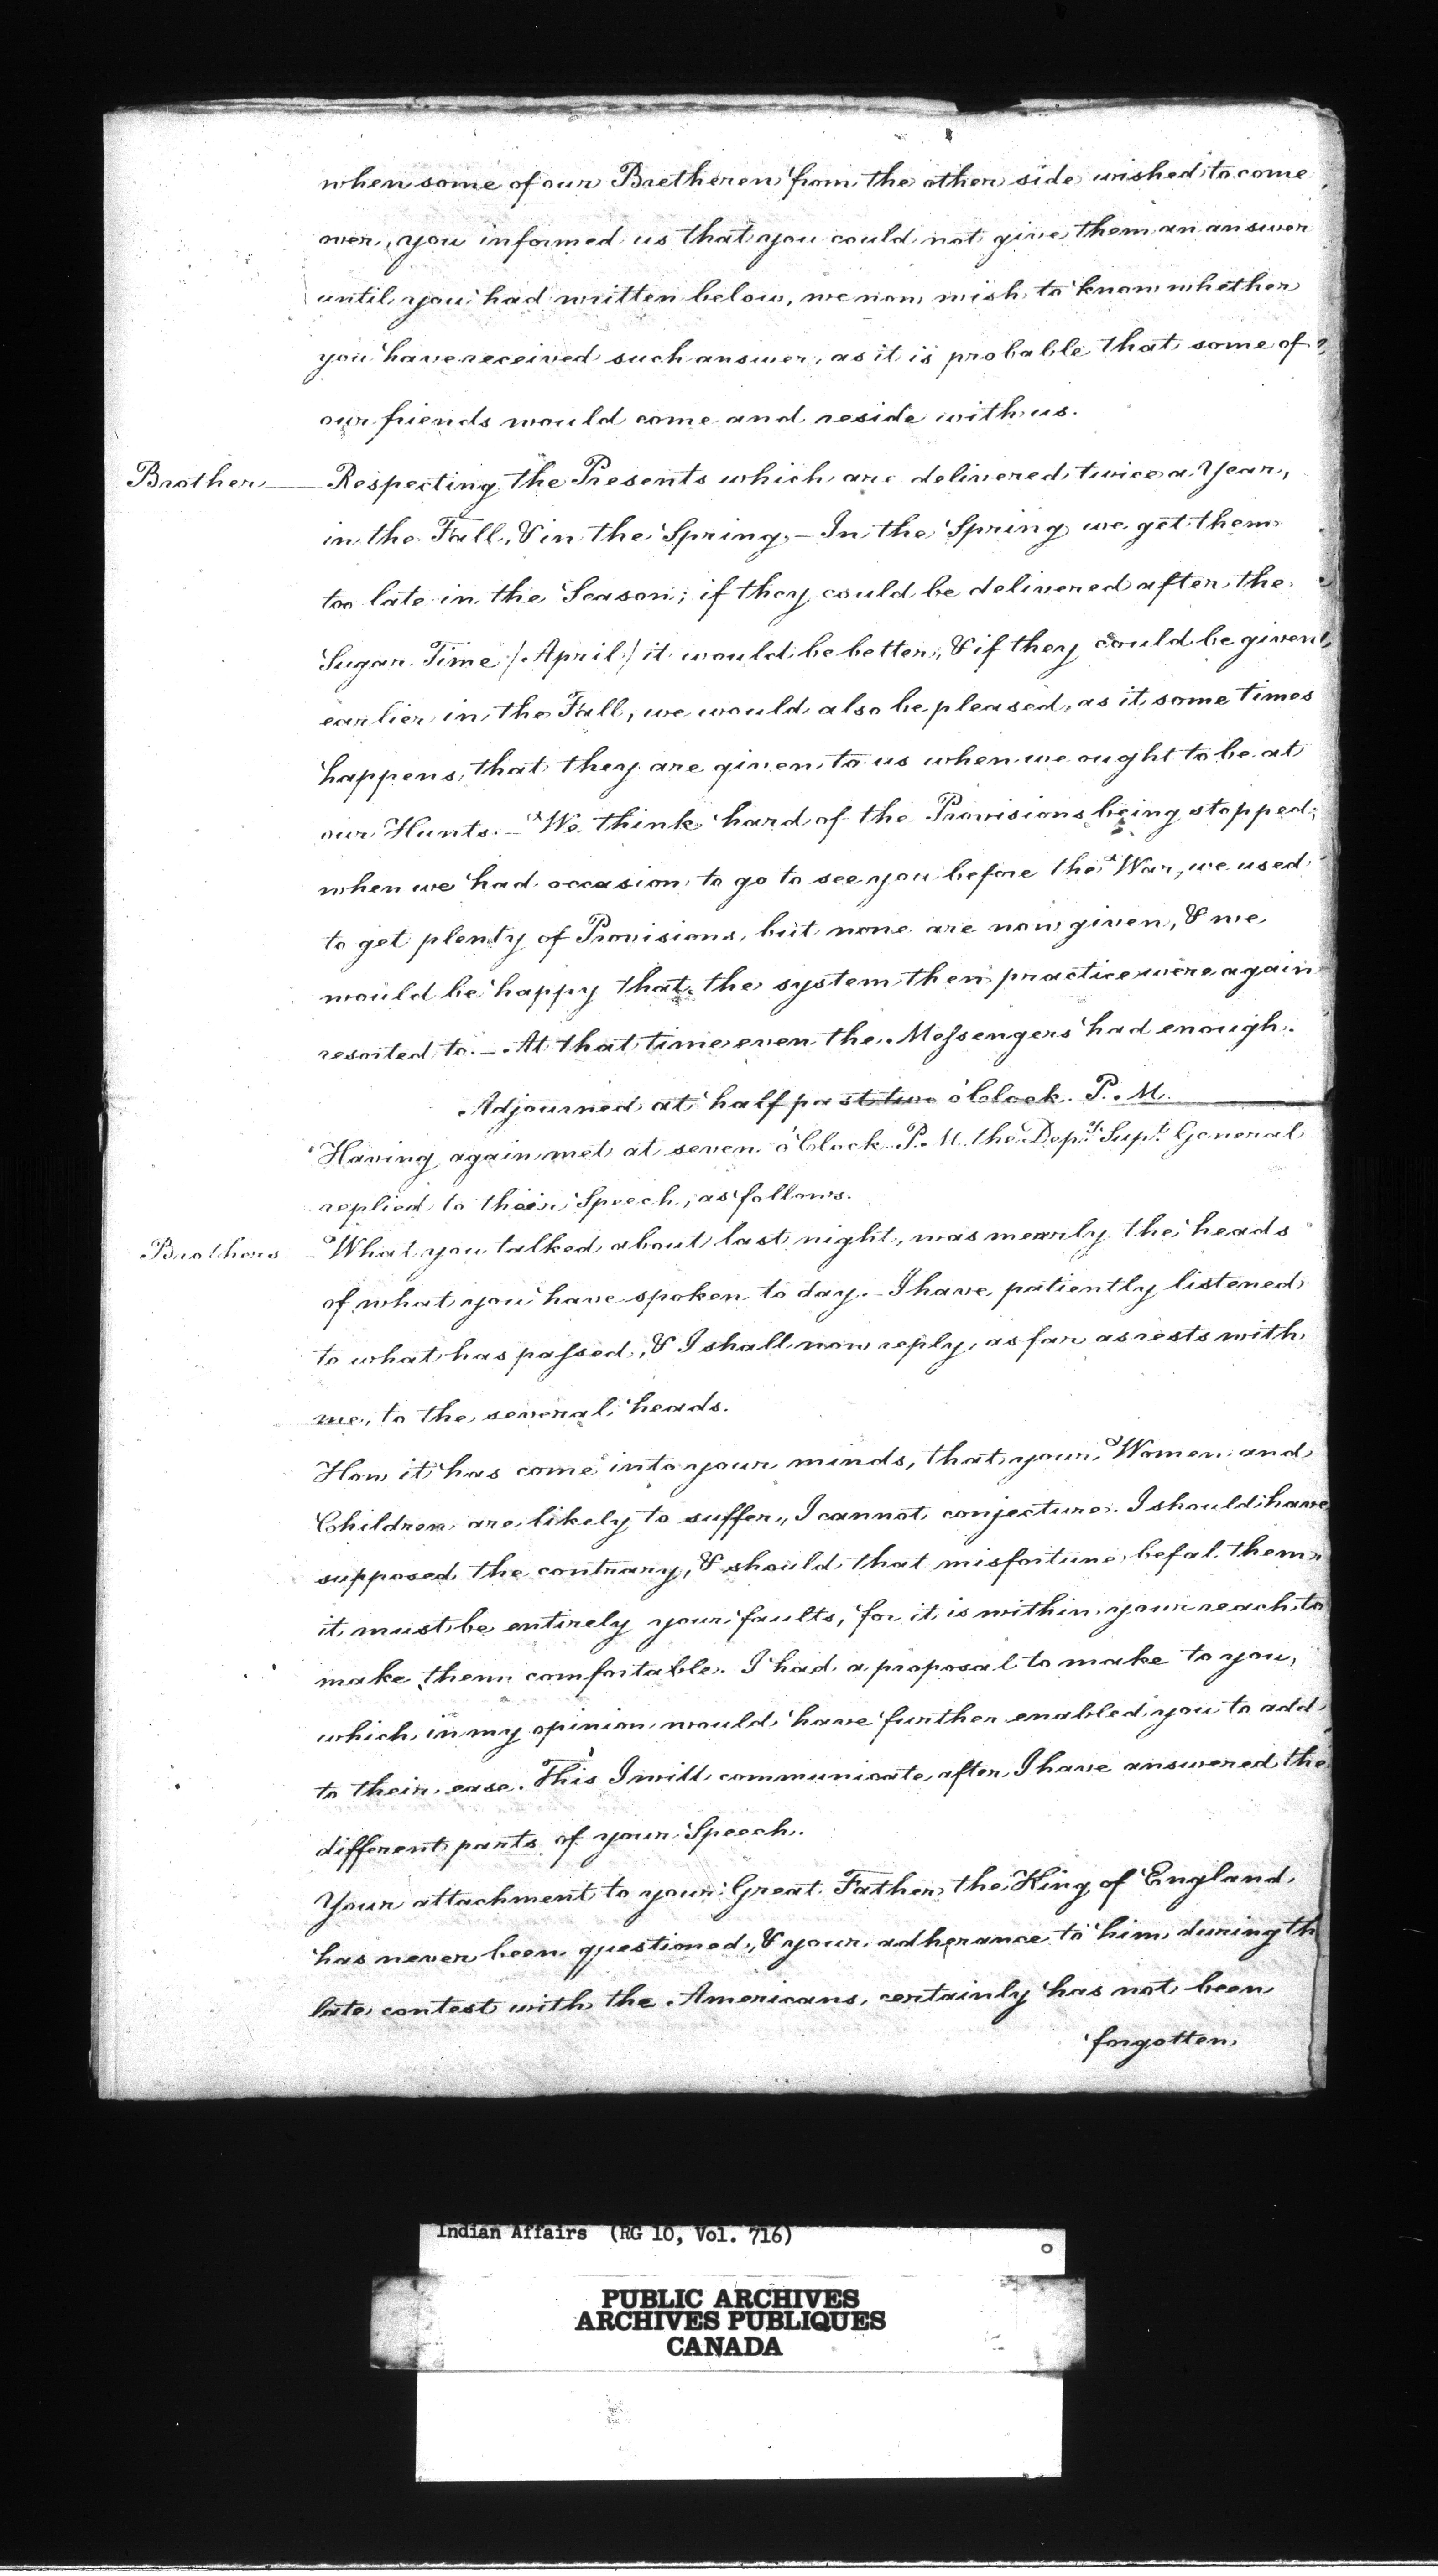 when some of our Bretheren from the other side wished to come
over, you informed us that you could not give them an answer
until you had written below, we now wish to know whether
you have received such answer, as it is probable that some of
our friends would come and reside with us.
Brother Respecting the Presents which are delivered twice a Year,
in the Fall, & in the Spring. – In the Spring we get them
too late in the Season; if they could be delivered after the
Sugar Time / April / it would be better, & if they could be given
earlier in the Fall, we would also be pleased, as it some times
happens, that they are given to us when we ought to be at
our Hunts. – We think hard of the Provisions being stopped;
when we had occasion to go to see you before the War, we used
to get plenty of Provisions, but none are now given, & we
would be happy that the system then practice were again
resorted to. – At that time even the Messengers had enough.
Adjourned at half past two o'Clock P. M.
Having again met at seven o'Clock P. M. the Depy. Supt. General
replied to their Speech, as follows.
Brothers – What you talked about last night, was mearly the heads
of what you have spoken to day. – I have patiently listened
to what has passed, & I shall now reply, as far as rests with
me, to the several heads.
How it has come into your minds, that your Women and
Children are likely to suffer, I cannot conjecture. I should have
supposed the contrary, & should that misfortune befal them
it must be entirely your faults, for it is within your reach to
make them comfortable. I had a proposal to make to you,
which in my opinion would have further enabled you to add
to their ease. This I will communicate after I have answered the
different parts of your Speech.
Your attachment to your Great Father the King of England
has never been questioned, & your adherance to him during th
late contest with the Americans, certainly has not been
forgotten
Indian Affairs (RG 10, Vol. 716)
PUBLIC ARCHIVES
ARCHIVES PUBLIQUES
CANADA